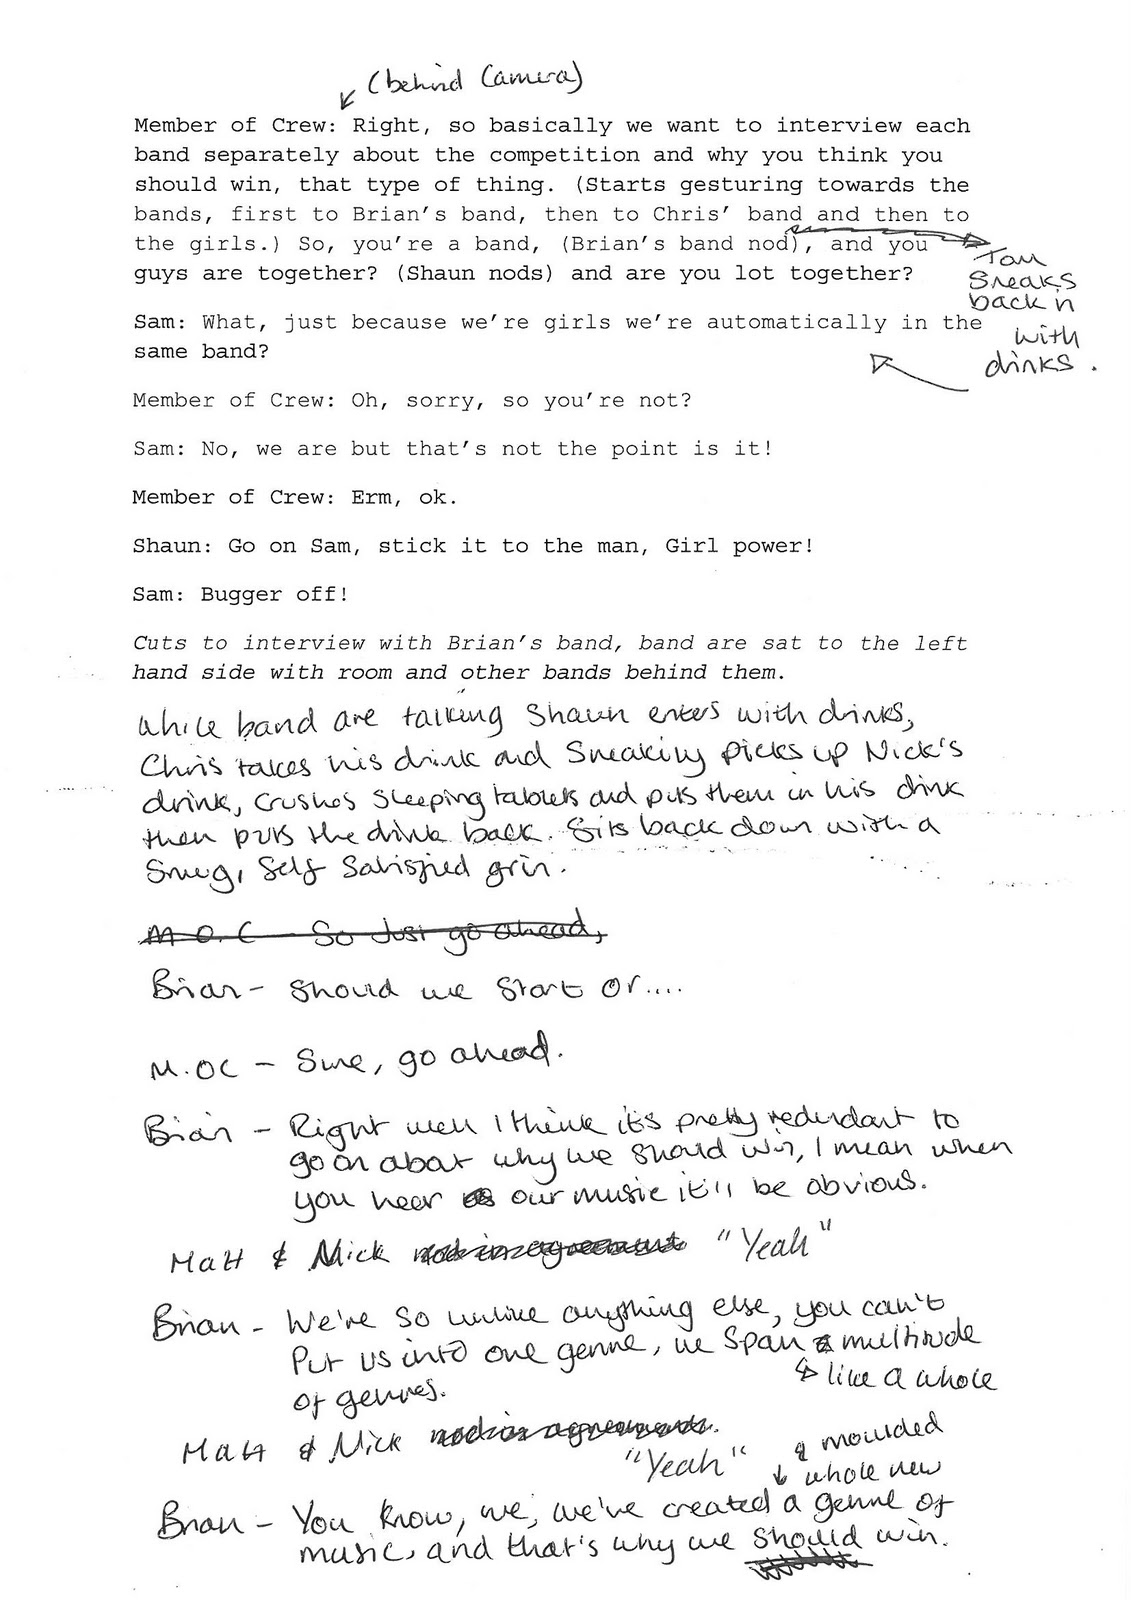 (behind Camera)
Member of Crew: Right, so basically we want to interview each
band separately about the competition and why you think you
should win, that type of thing. (Starts gesturing towards the
bands, first to Brian's band, then to Chris' band and then to
the girls.) So, you're a band, (Brian's band nod), and you
guys are together? (Shaun nods) and are you lot together?
Tom
Sneaks
back in
with
drinks.
Sam: What, just because we're girls we're automatically in the
same band?
Member of Crew: Oh, sorry, so you're not?
Sam: No, we are but that's not the point is it!
Member of Crew: Erm, ok.
Shaun: Go on Sam, stick it to the man, Girl power!
Sam: Bugger off!
Cuts to interview with Brian's band, band are sat to the left
hand side with room and other bands behind them.
While band are talking Shaun enters with drinks,
Chris takes his drink and Sneakily picks up Nick's
drink, crushes sleeping tablets and puts them in his drink
then puts the drink back. Sits back down with a
Smug, Self Satisfied grin.
M.O.C - So Just go ahead,
Brian - Should we start or....
M.OC - Sure, go ahead.
Brian - Right well I think it's pretty redundant to
go on about why we should win, I mean when
you hear our music it'll be obvious.
Matt & Nick nod in agreement "Yeah"
Brian - We're so unlike anything else, you can't
Put us into one genre, we span a multitude
like a whole
of genres.
Matt & Nick nod in agreement.
"Yeah"
& moulded
whole new
Brian - You know, we, we've created a genre of
music, and that's why we should win.